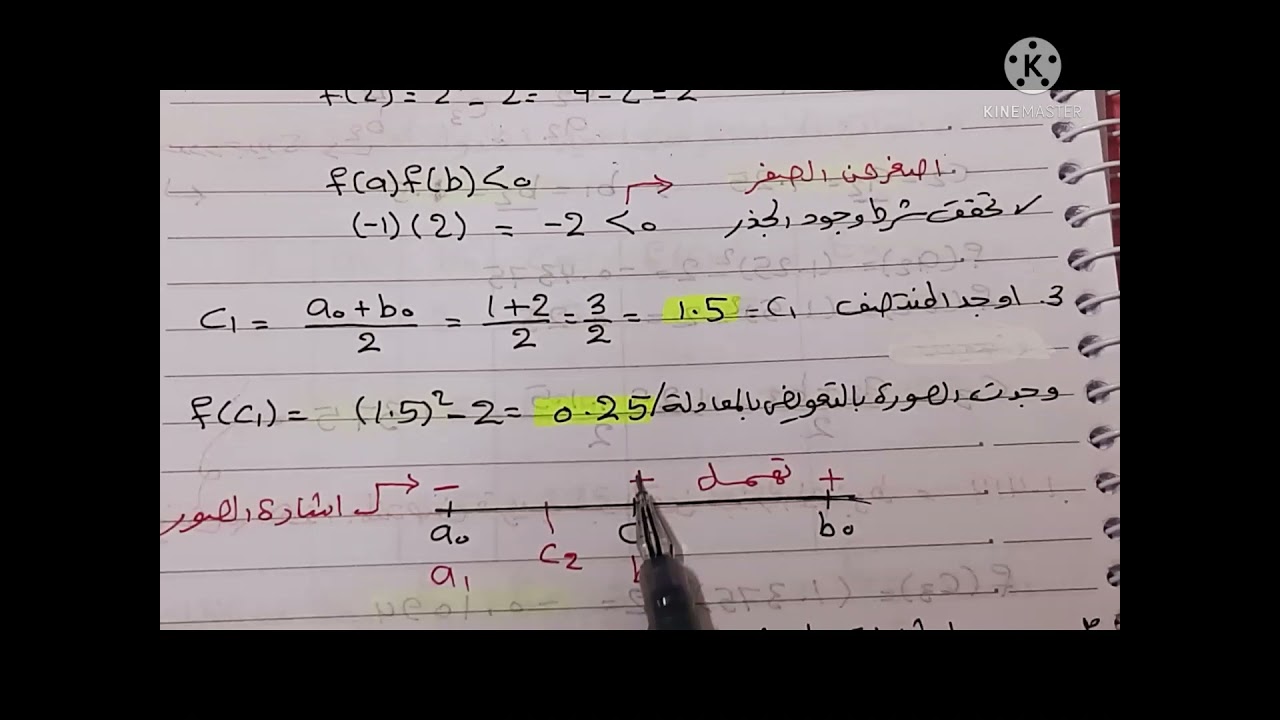 KINEMASTER
f(2) = 2² - 2 = 4 - 2 = 2
f(a) f(b) < 0 اصغر من الصفر
(-1)(2) = -2 < 0 تحققت شرط وجود الجذر
3. اوجد المنتصف C₁ = (a₀+b₀)/2 = (1+2)/2 = 3/2 = 1.5 = C₁
وجدت الصورة بالتعويض بالمعادلة / f(C₁) = (1.5)² - 2 = 0.25
اشارة الصور - + تهمل +
a₀ C₂ b₀
a₁